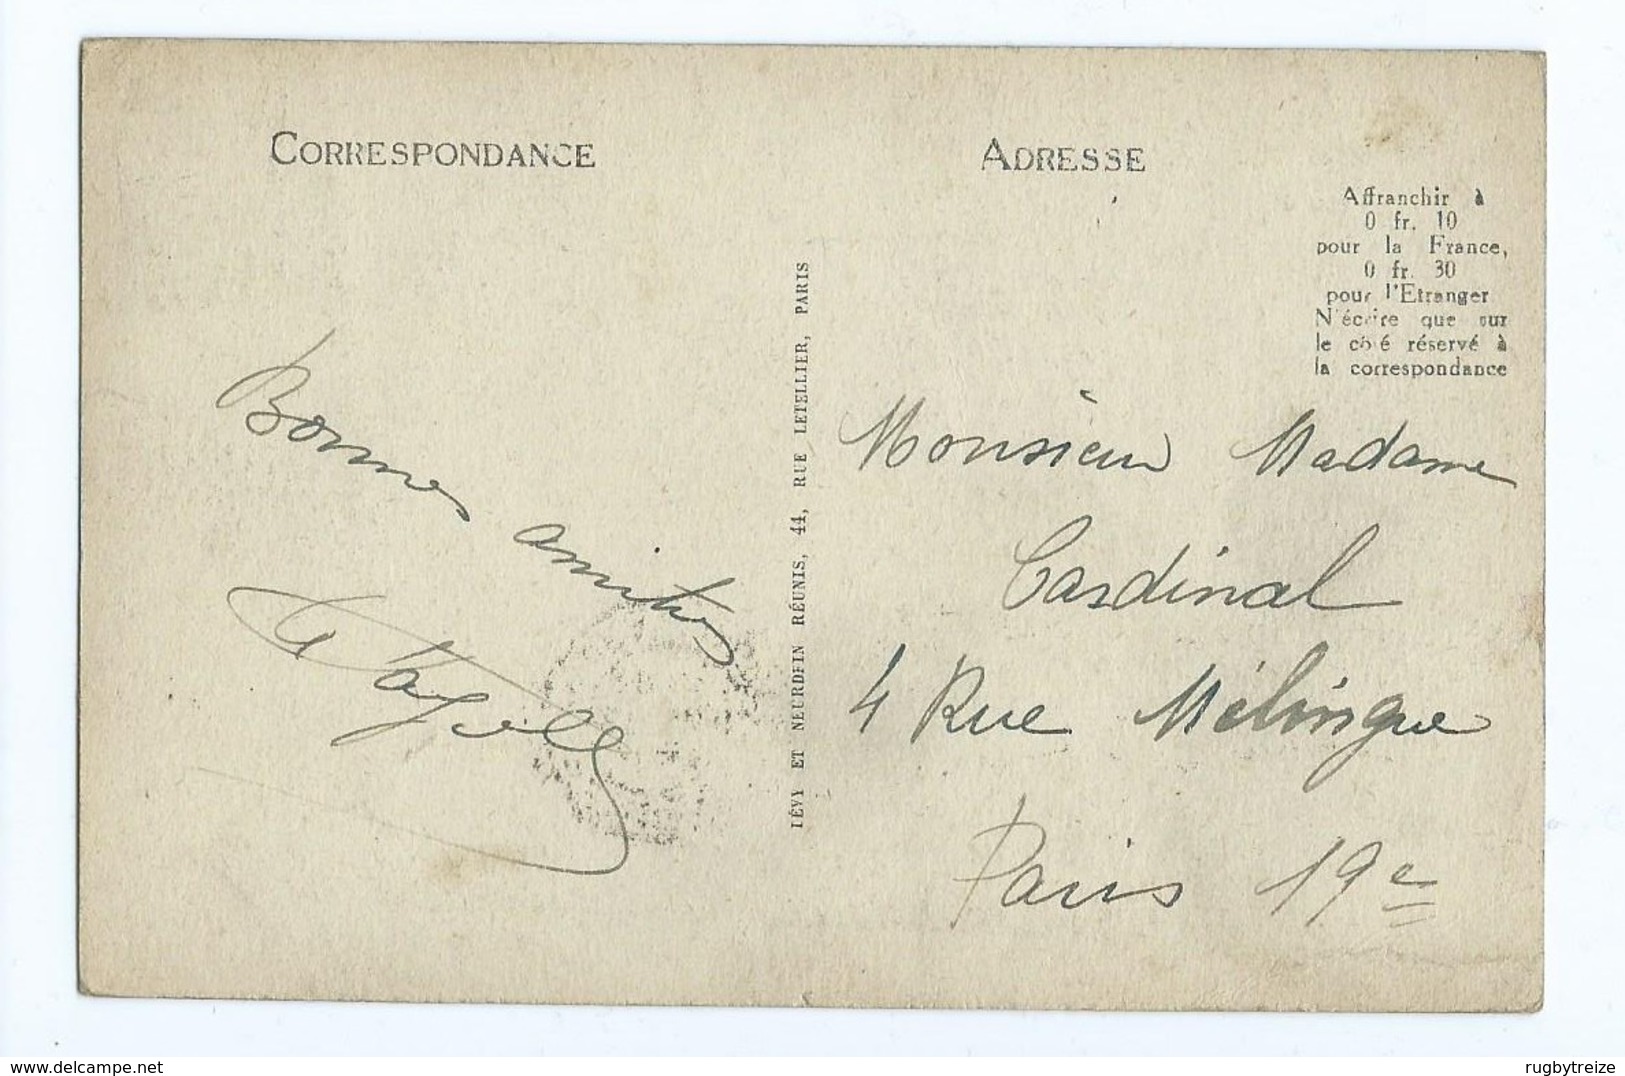 CORRESPONDANCE
Bonnes amitiés
ADRESSE
Affranchir à
0 fr. 10
pour la France,
0 fr. 30
pour l'Etranger
N'écrire que sur
le côté réservé à
la correspondance
LÉVY ET NEURDEIN RÉUNIS, 44, RUE LETELLIER, PARIS
Monsieur Madame
Cardinal
4 Rue Mélingue
Paris 19e
delcampe.net
rugbytreize